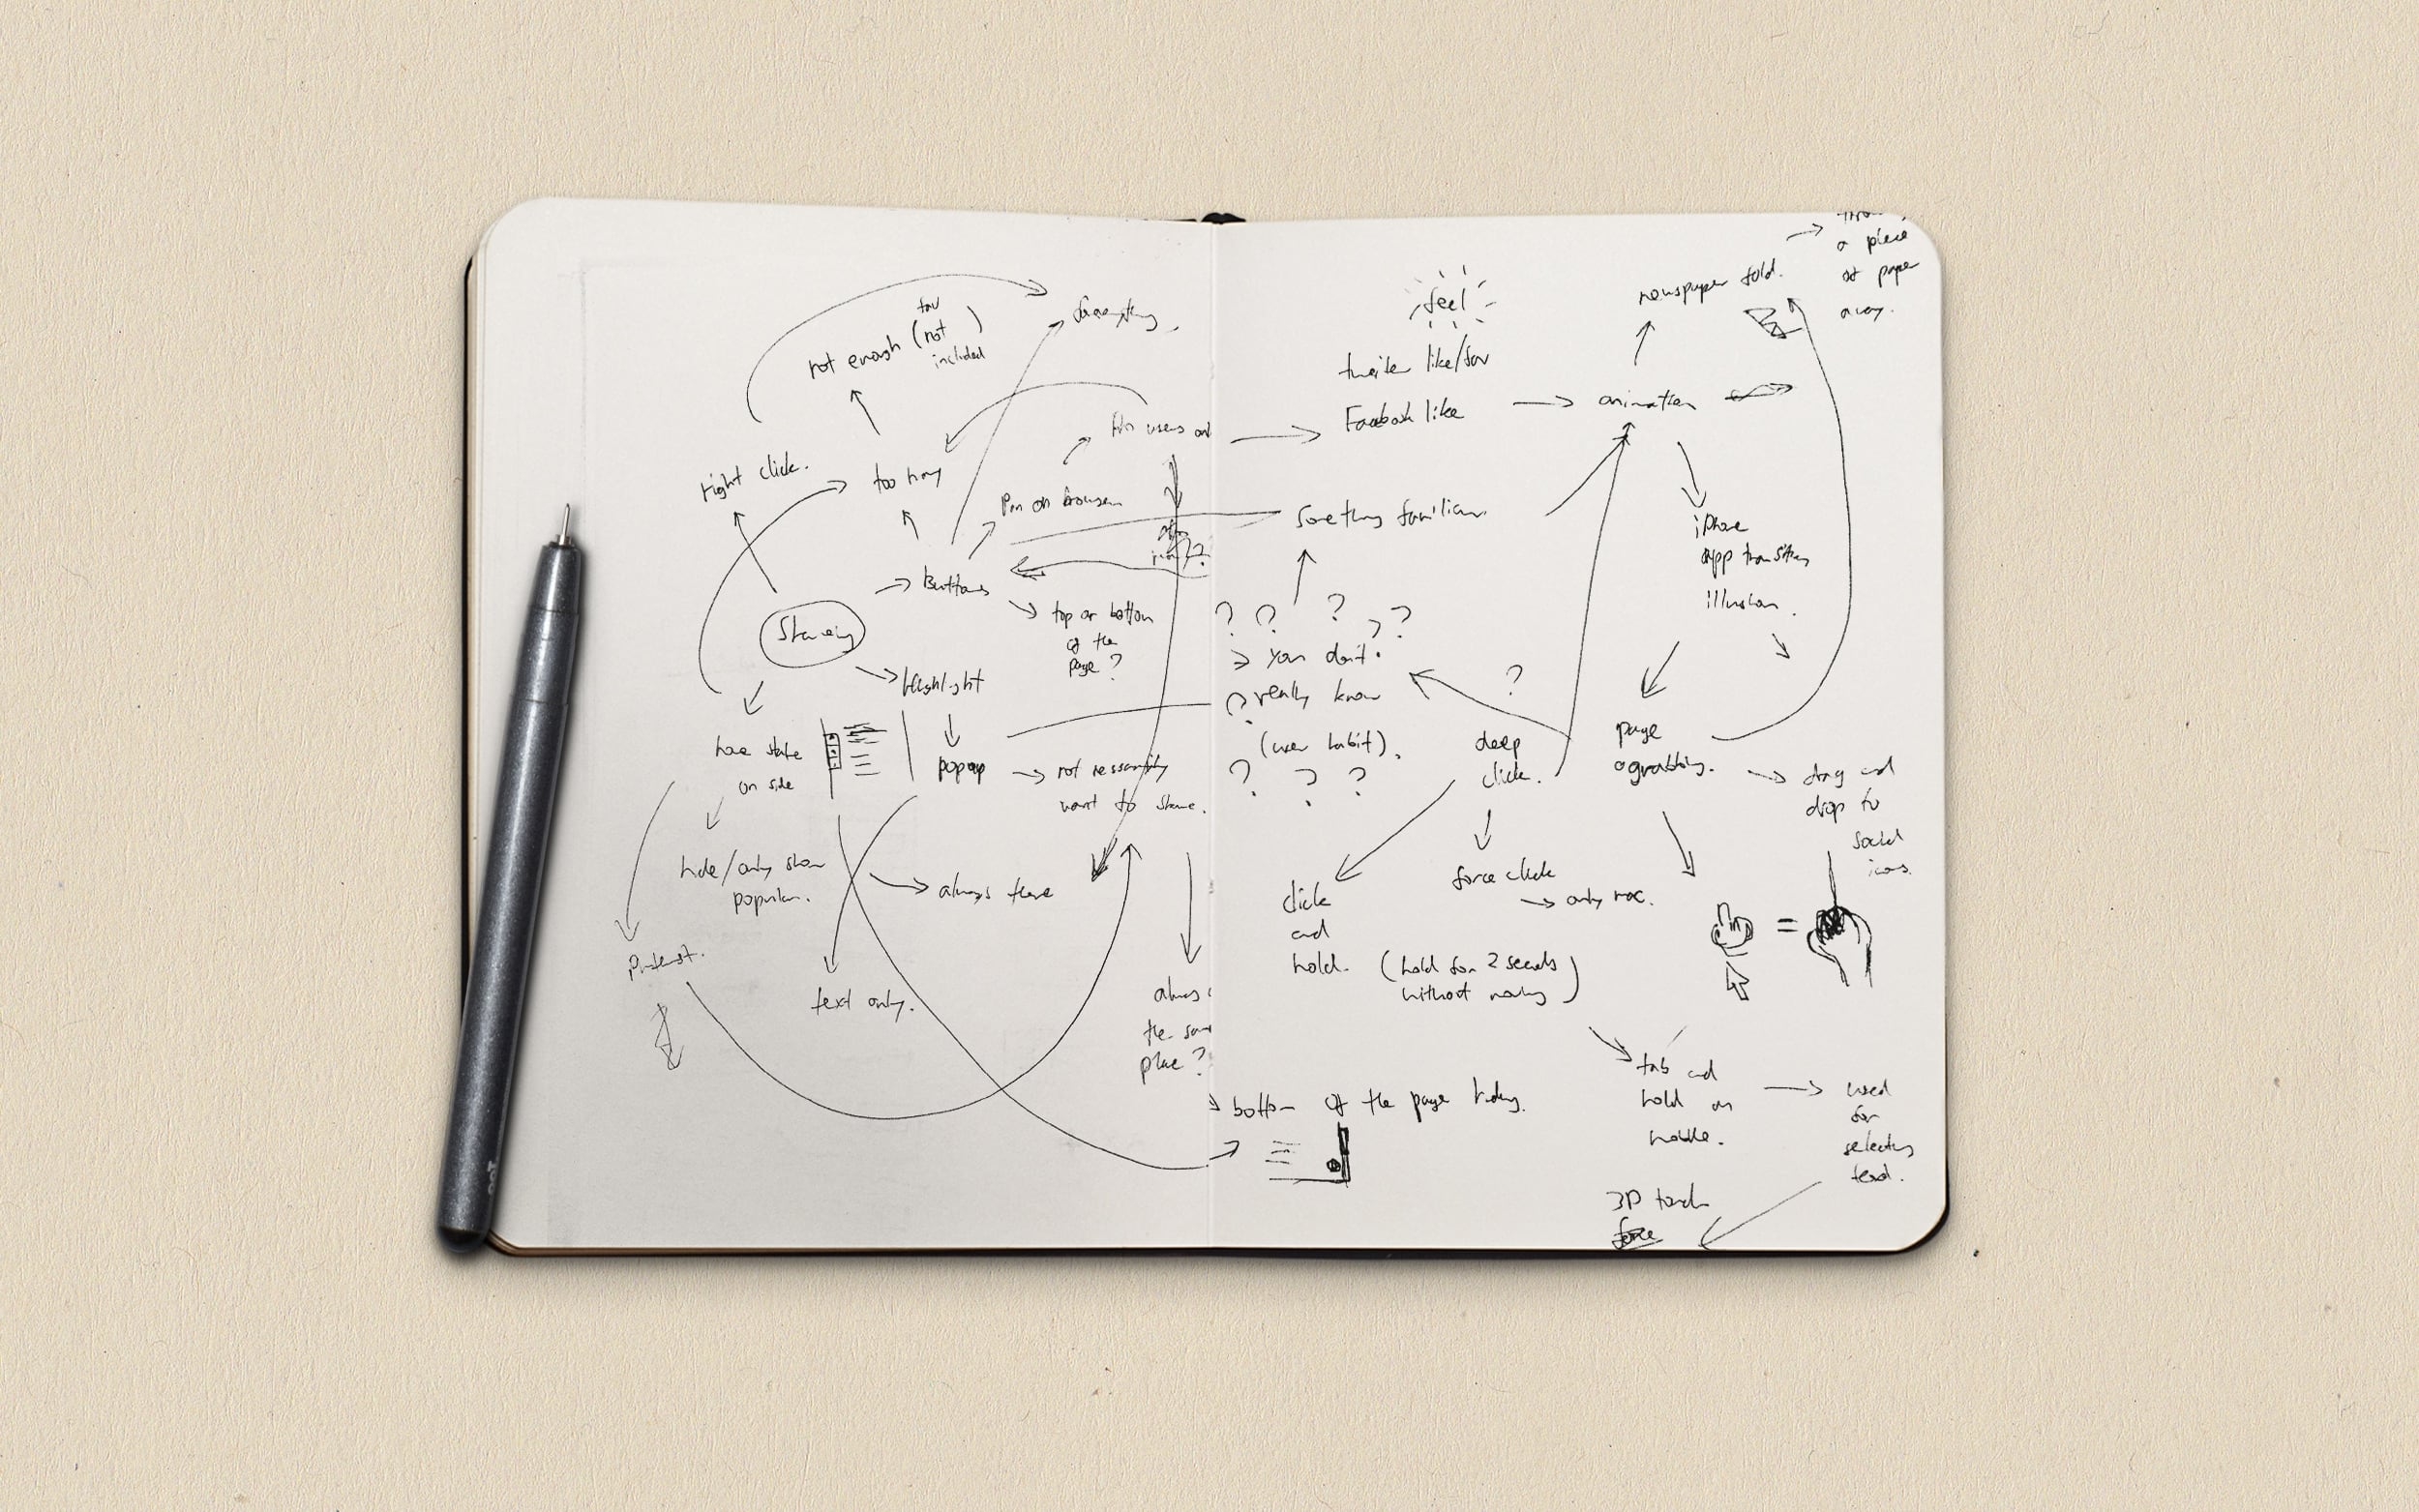 feel
newspaper fold.
a piece
of paper
away.
fav
not enough (not
included)
twitter like/fav
Facebook like
animation
right click.
too many
Pin on browser
something familiar.
iPhone
app transition
illusion.
Buttons
top or bottom
of the
page?
Sharing
Highlight
? ? ? ? ?
you don't
really know
(user habit).
? ? ?
?
have
on side
popup
not necessarily
want to share.
deep
click.
page
grabbing.
drag and
drop to
social
icons.
hide/only show
popular.
always there
click
and
hold.
force click
only mac.
(hold for 2 seconds
without moving)
=
Pinterest.
text only.
the
place?
bottom of the page hiding.
tab and
hold on
mobile.
used
for
selecting
text.
3D touch
force